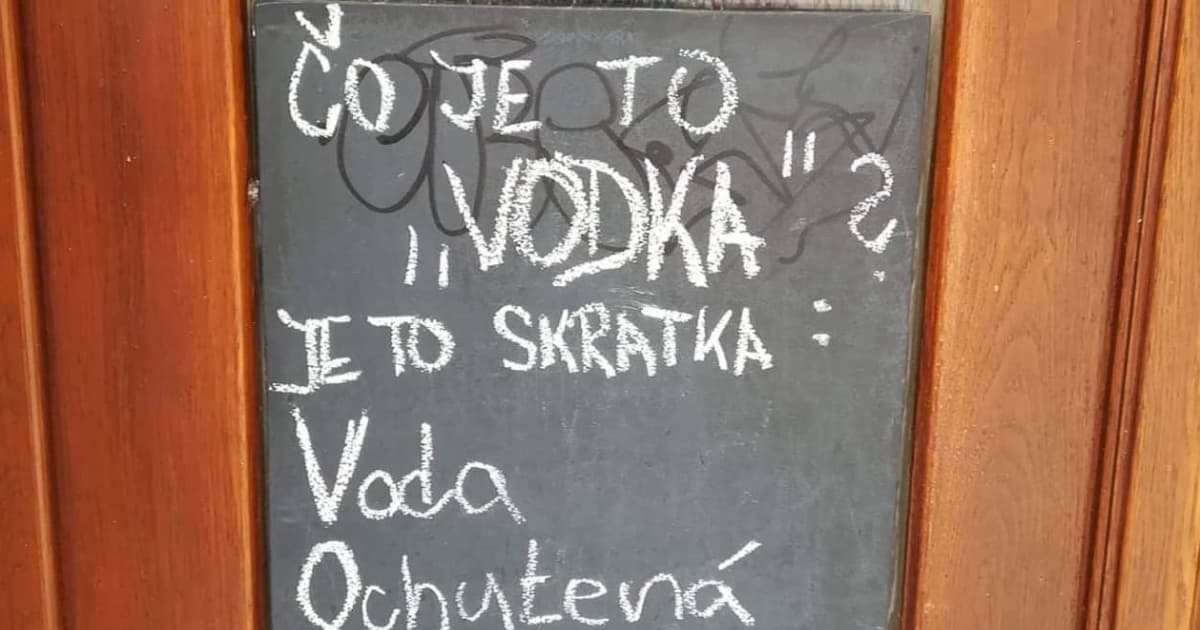 ČO JE TO
„VODKA" ?
JE TO SKRATKA :
Voda
Ochutená